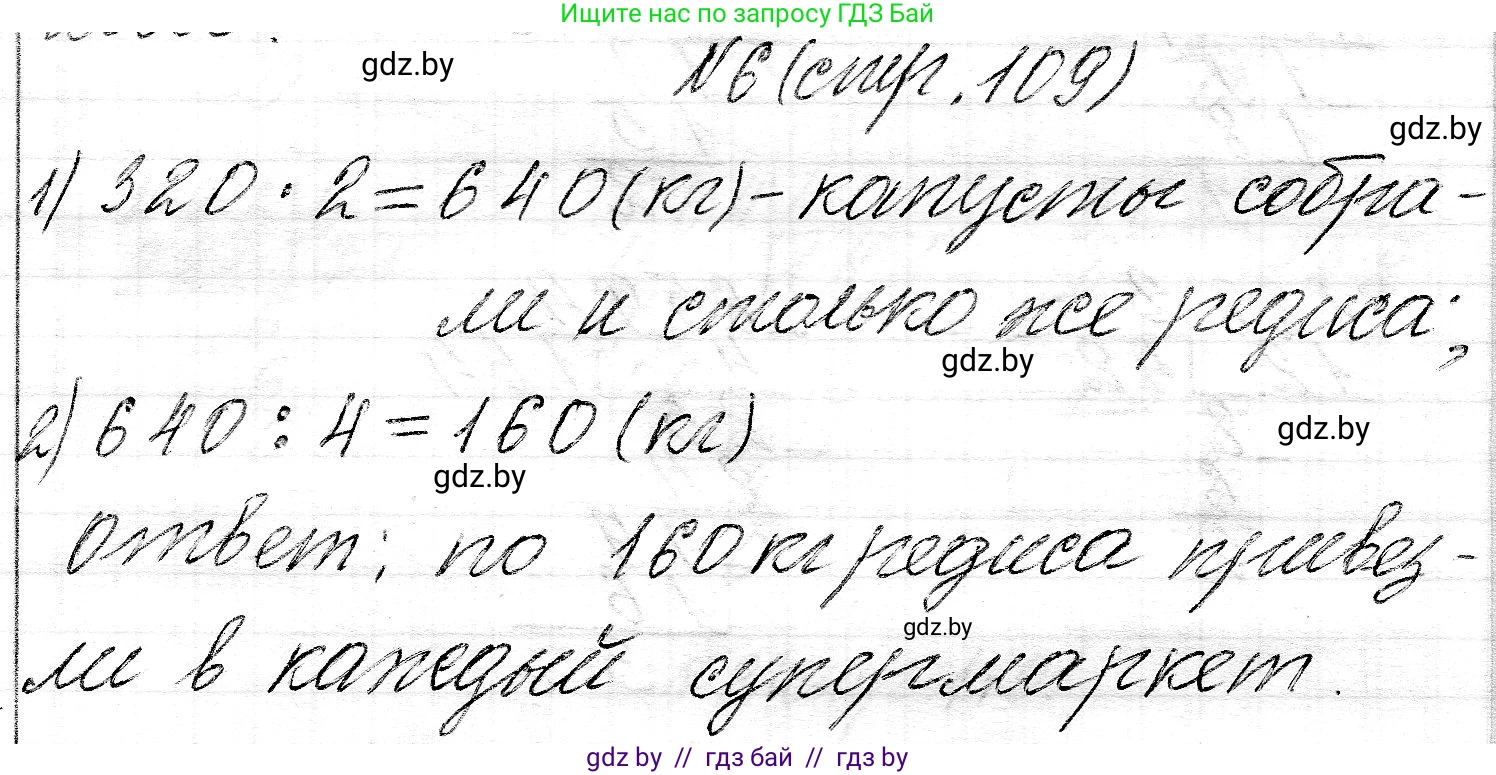 Ищите нас по запросу ГДЗ Бай
gdz.by
№6 (стр. 109)
gdz.by
1) 320 · 2 = 640 (кг) - капусты собра-
ли и столько же редиса;
gdz.by
2) 640 : 4 = 160 (кг)
gdz.by
gdz.by
ответ: по 160 кг редиса привез-
gdz.by
ли в каждый супермаркет.
gdz.by // гдз бай // гдз by